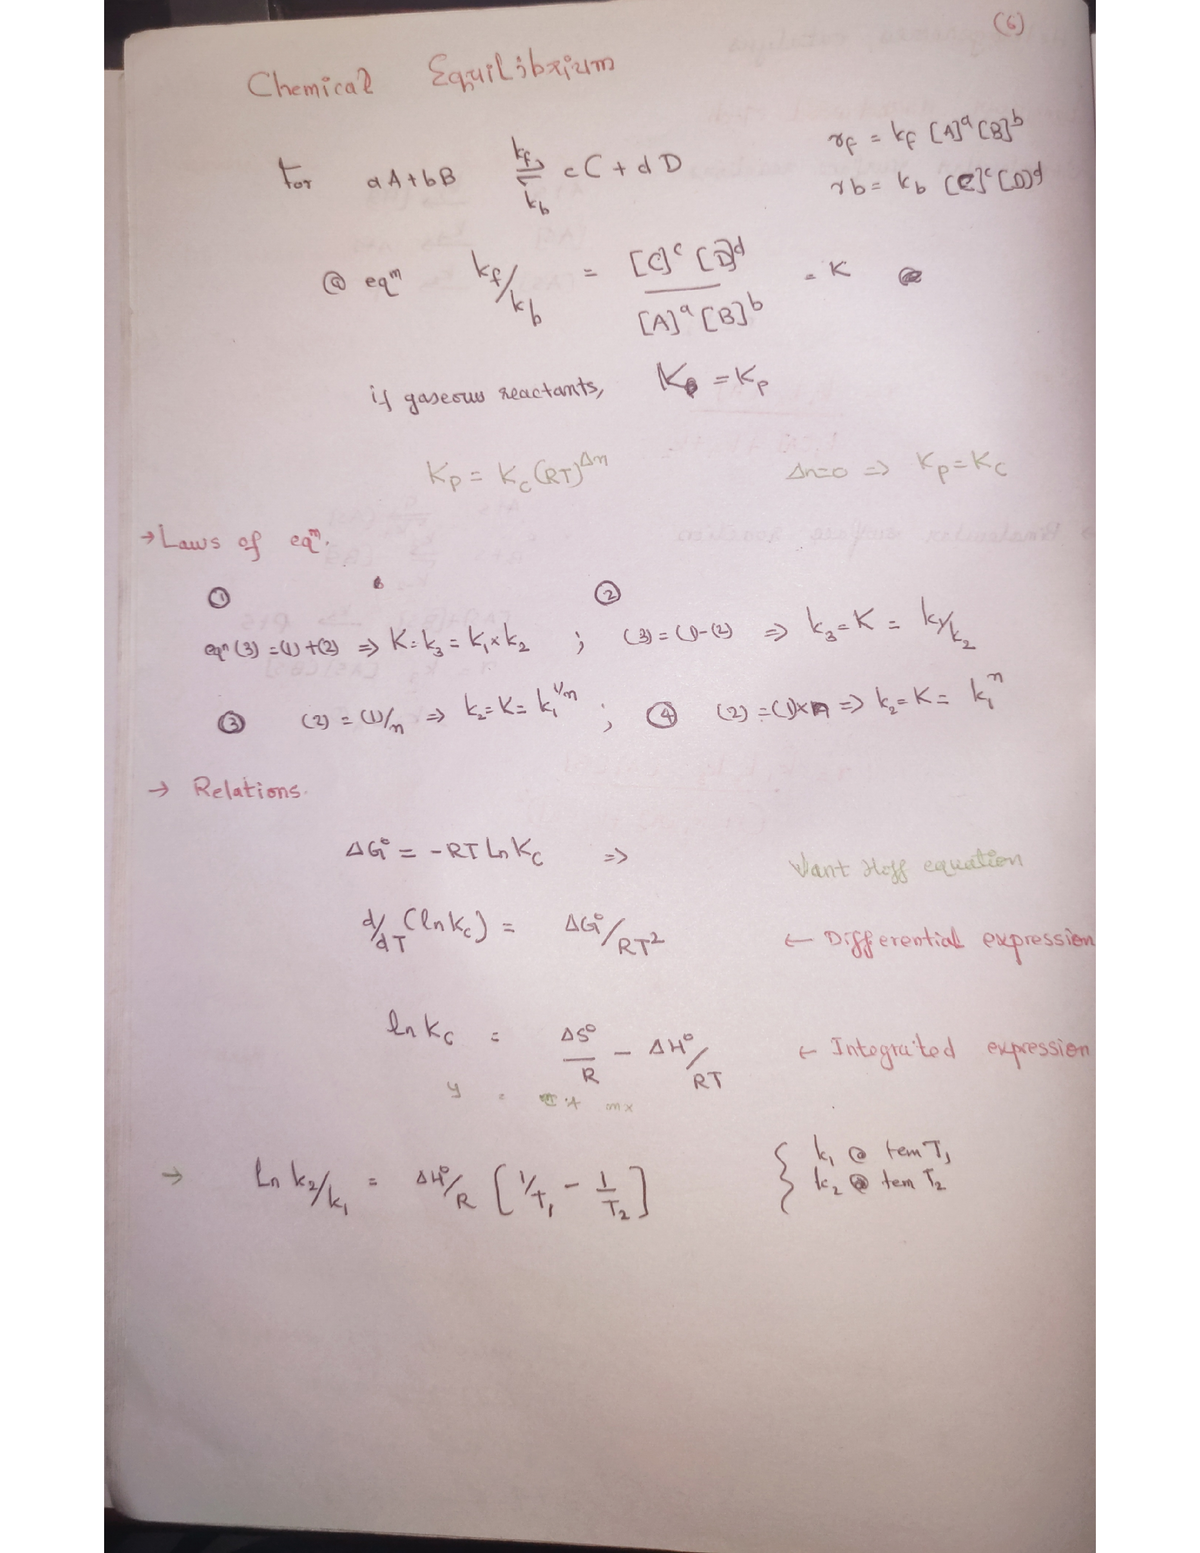 (6)
Chemical Equilibrium
For aA+bB ⇌ cC + dD
kf
kb
rf = kf [A]^a [B]^b
rb = kb [C]^c [D]^d
@ eqm kf/kb = [C]^c [D]^d / [A]^a [B]^b = K
if gaseous reactants, K = Kp
Kp = Kc (RT)^Δn Δn=0 => Kp = Kc
→ Laws of eqm.
① ②
eqn (3) = (1) + (2) => K = k3 = k1 x k2 ; (3) = (1) - (2) => k3 = K = k1/k2
③ (2) = (1)/n => k2 = K = k1^1/n ; ④ (2) = (1) x n => k2 = K = k1^n
→ Relations.
ΔG° = -RT Ln Kc =>
Vant Hoff equation
d/dT (ln Kc) = ΔG°/RT² ← Differential expression
ln Kc = ΔS°/R - ΔH°/RT ← Integraited expression
y = c + mx
→ Ln k2/k1 = ΔH°/R [1/T1 - 1/T2] { k1 @ tem T1
k2 @ tem T2